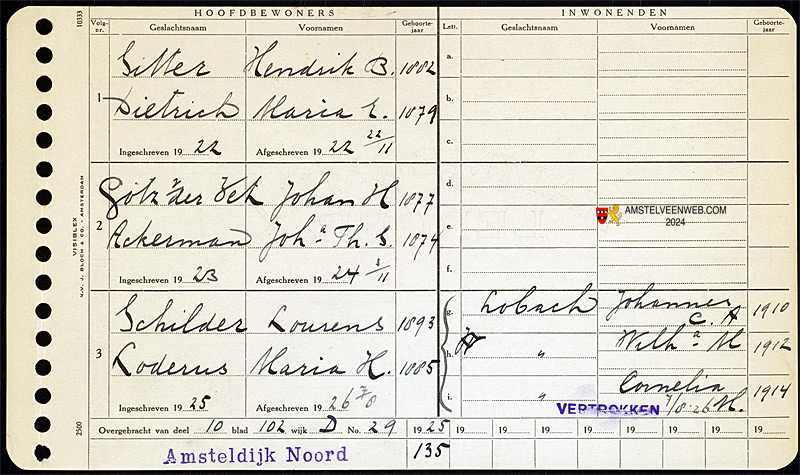 HOOFDBEWONERS INWONENDEN
Volg-nr. Geslachtsnaam Voornamen Geboorte-jaar Lett. Geslachtsnaam Voornamen Geboorte-jaar
10333
Sitter Hendrik B. 1882 a.
1 Dietrich Maria E. 1879 b.
c.
Ingeschreven 19 22 Afgeschreven 19 22 22/11
Götz v. der Vet Johan H 1877 d.
2 Ackerman Joh a Th. S. 1874 e.
f.
Ingeschreven 19 23 Afgeschreven 19 24 3/11
AMSTELVEENWEB.COM
2024
VISIBLEX
N.V. J. BLOCH & CO. / AMSTERDAM
Schilder Lourens 1893 g. Lobach Johannes C. A 1910
3 Loderus Maria H. 1885 h. " Wilh a M 1912
i. " Cornelia M. 1914
Ingeschreven 19 25 Afgeschreven 19 26 7/8 VERTROKKEN 7/8-26
2500
Overgebracht van deel 10 blad 102 wijk D No. 29 19 25 19 19 19 19 19 19 19 19
Amsteldijk Noord 135